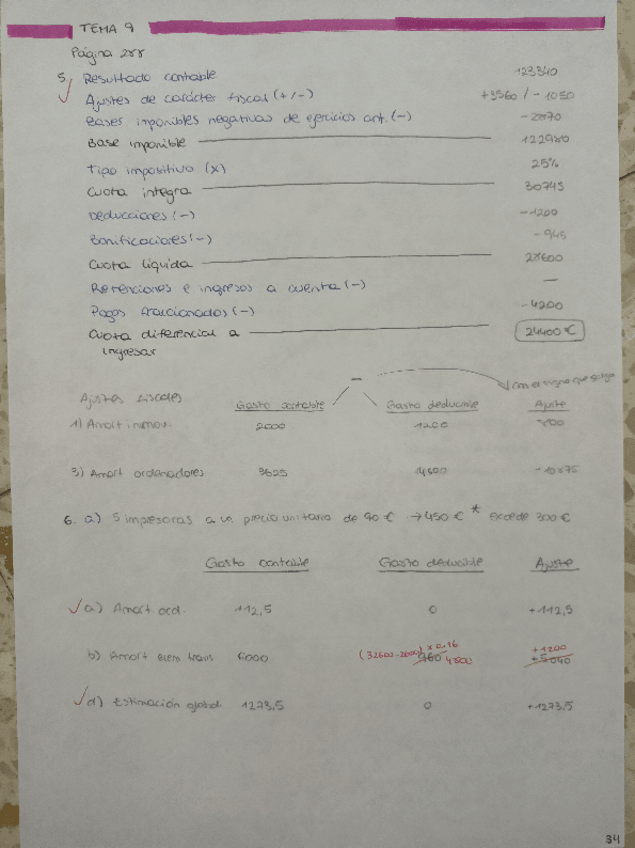 TEMA 9
Página 288
5. Resultado contable 123340
Ajustes de carácter fiscal (+/-) +3560 / -1050
Bases imponibles negativas de ejercicios ant. (-) -2870
Base imponible 122980
Tipo impositivo (x) 25%
Cuota íntegra 30745
Deducciones (-) -1200
Bonificaciones (-) -945
Cuota líquida 28600
Retenciones e ingresos a cuenta (-) —
Pagos fraccionados (-) -4200
Cuota diferencial a 24400 €
ingresar
—
con el signo que salga
Ajustes fiscales Gasto contable Gasto deducible Ajuste
1) Amort inmov. 2000 1200 800
3) Amort ordenadores 3625
6. a) 5 impresoras a un precio unitario de 90 € → 450 € * excede 300 €
Gasto contable Gasto deducible Ajuste
a) Amort acel. 112,5 0 +112,5
(32600-2600) x 0,16 +1200
b) Amort elem trans 6000 960 4800 +5040
d) Estimación global 1273,5 0 +1273,5
34